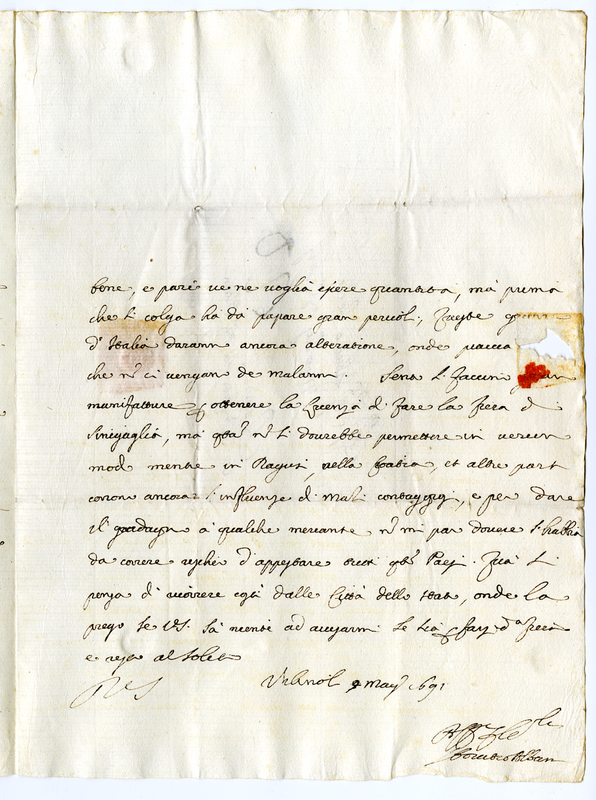 bene, e pare ve ne voglia essere quantità, mà prima
che si colga hà da passare gran pericoli,
d'Italia darann ancora alteratione, onde
che nõ ci vengan de malanni. Sento si faccino
manifatture ottenere la licenza di fare la fiera di
Sinigaglia, mà nõ si dovrebbe permettere in verun
modo mentre in Ragusi, nella et altre parti
corrono ancora l'influenze di mali contaggiosi, e per dare
il guadagno a qualche mercante nõ mi par dovere s'habbia
da correre rischio d'appestare tutti Paesi. Quà si
pensa di dalle Città dello stato, onde la
prego se VS. sà niente ad avvisarmi se sia fiera
e resto al solito
VS Urbino 9 Magg. 1691